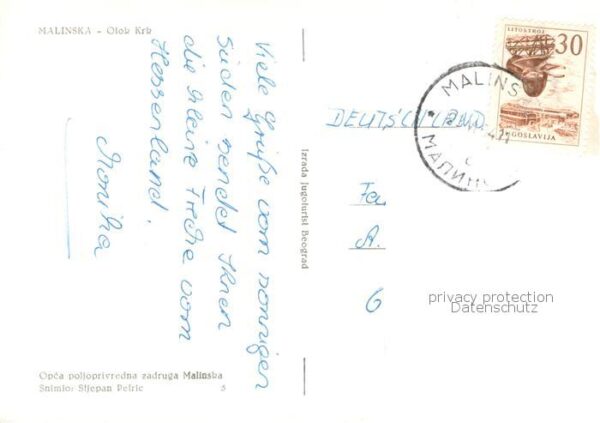 MALINSKA - Otok Krk
Viele Grüße vom sonnigen
Süden sendet Ihnen
die kleine Freche vom
Hessenland.
Monika
Opća poljoprivredna zadruga Malinska
Snimio: Stjepan Petric 5
Izrada Jugoturist Beograd
LITOSTROJ
30
JUGOSLAVIJA
MALINS
МАЛИН
DEUTSCHLAND
Fa.
A.
6
privacy protection
Datenschutz